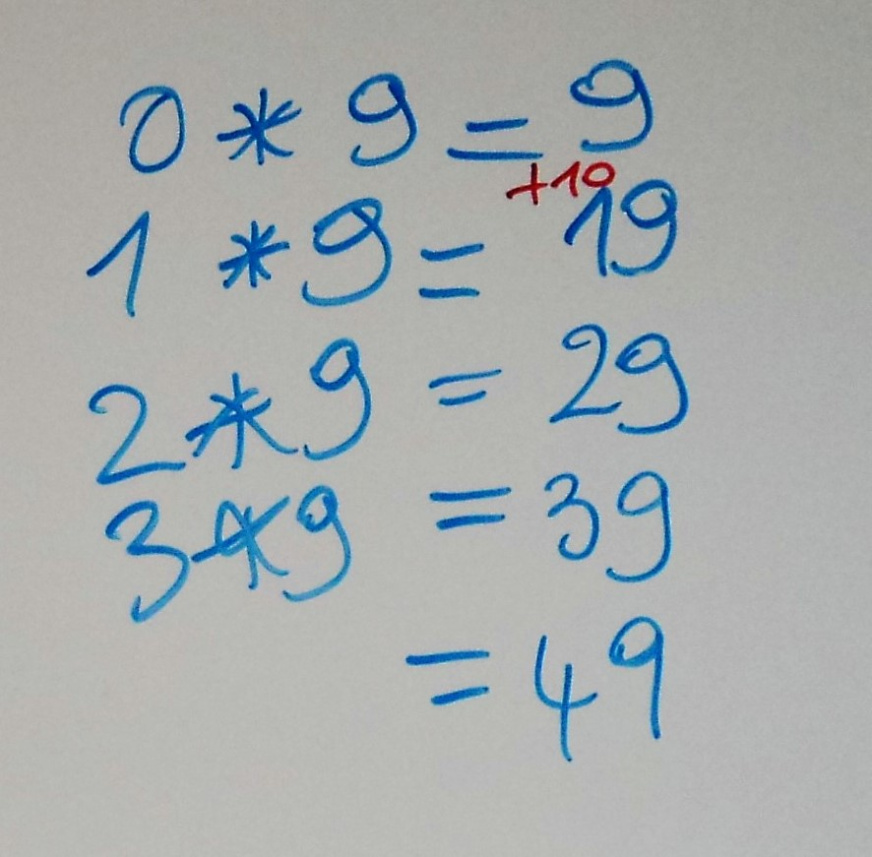 0 * 9 = 9
+10
1 * 9 = 19
2 * 9 = 29
3 * 9 = 39
= 49